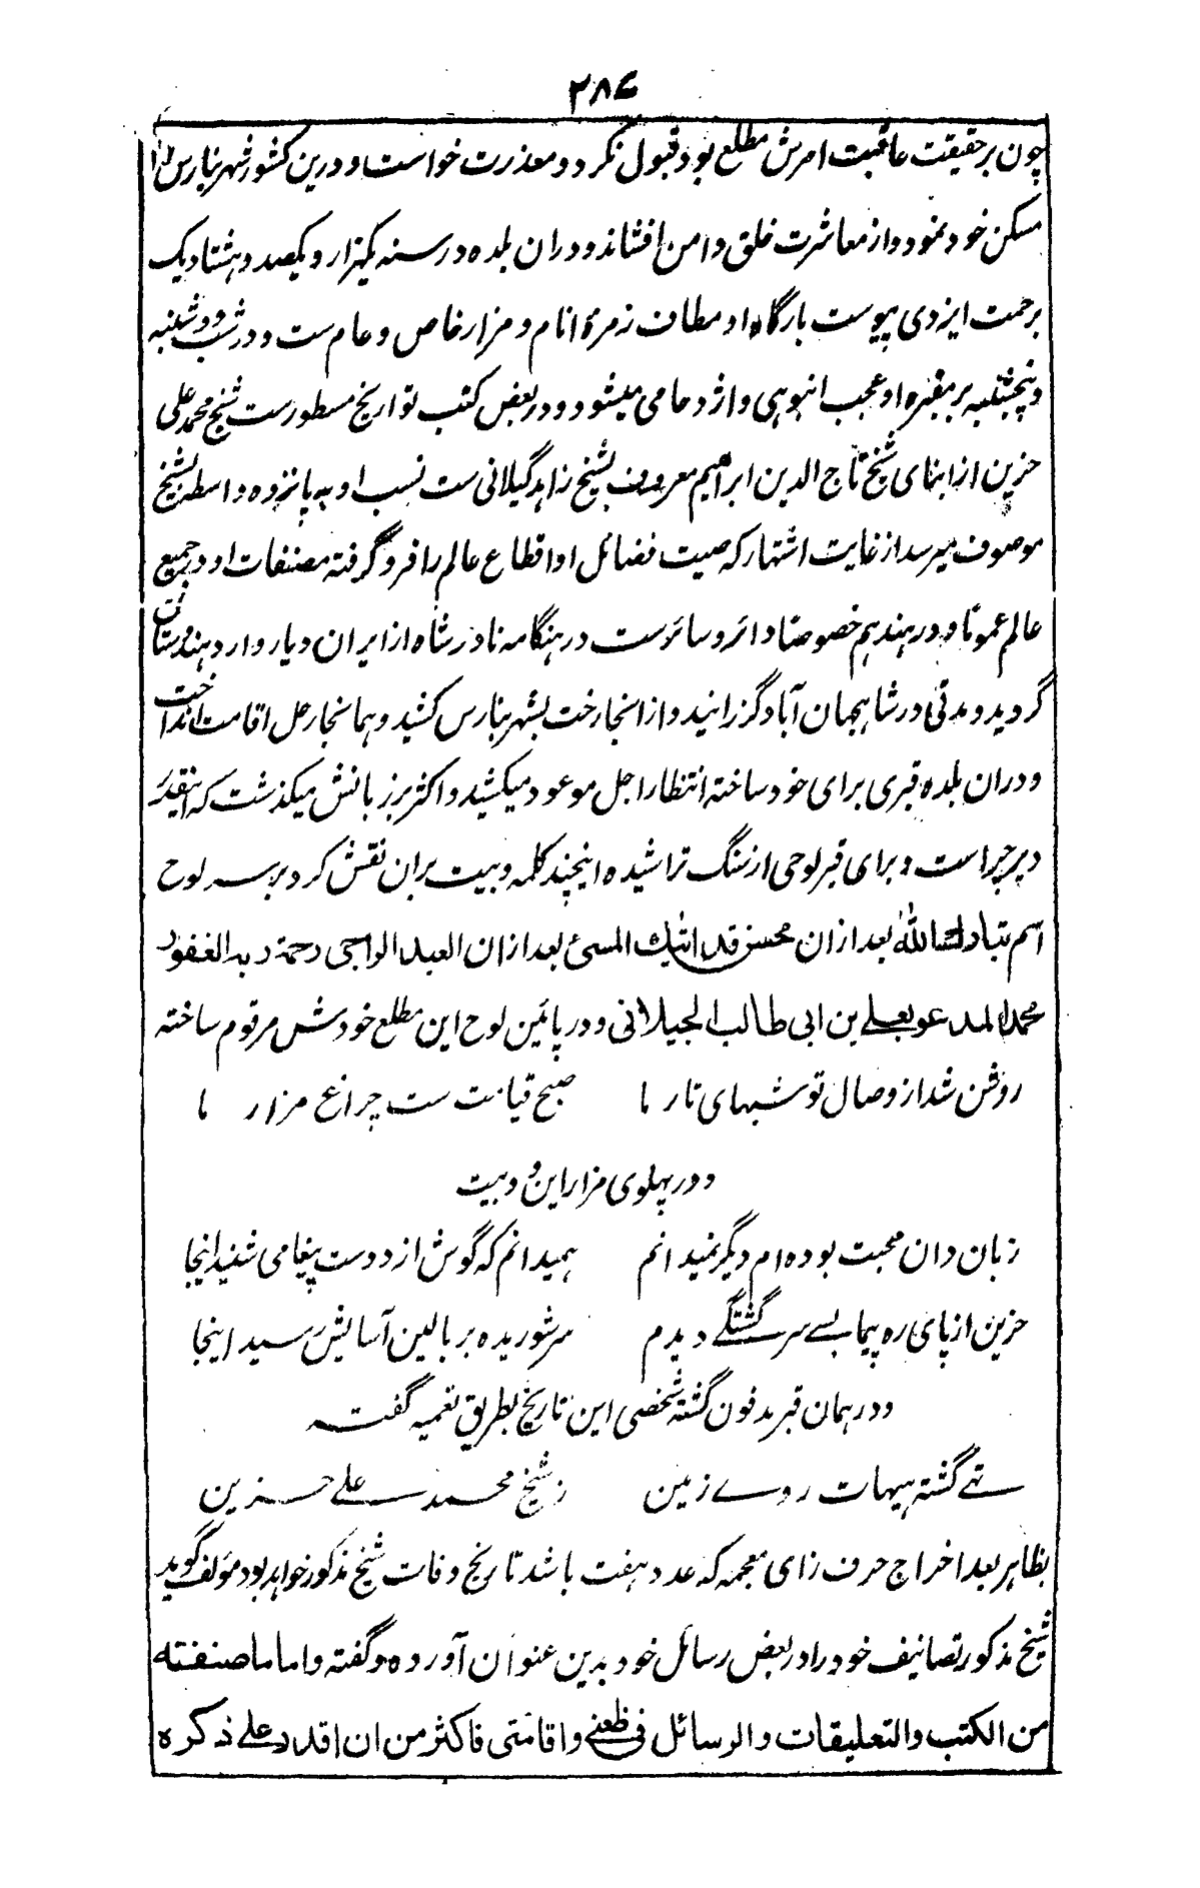 ۲۸۶
چون بر حقیقت عاقبت امرش مطلع بود قبول نکرد و معذرت خواست و درین کشور شهر بنارس را
مسکن خود نمود و از معاشرت خلق دامن افشاند و دران بلده در سنه یکهزار و یکصد و هشتاد یک
برحمت ایزدی پیوست بارگاه او مطاف زمرهٔ انام و مزار خاص و عام ست و در شب دوشنبه
و پنجشنبه بر مقبره او عجب انبوهی و اژدحامی میشود و در بعض کتب تواریخ مسطورست شیخ محمد علی
حزین از ابنای شیخ تاج الدین ابراهیم معروف بشیخ زاهد گیلانی ست نسب او به پانزده واسطه بشیخ
موصوف میرسد از غایت اشتهار که صیت فضائل او اقطاع عالم را فرو گرفته مصنفات او در جمیع
عالم عموما و در هند هم خصوصا دائر و سائرست در هنگامه نادر شاه از ایران دیار وارد هندوستان
گردید و مدتی در شاهجهان آباد گزرانید و از انجا رخت بشهر بنارس کشید و همانجا رحل اقامت انداخت
و دران بلده قبری برای خود ساخته انتظار اجل موعود میکشید و اکثر بر زبانش میگذشت که اینقدر
دیر چراست و برای قبر لوحی از سنگ تراشیده اینچند کلمه و بیت بران نقش کرد بر سر لوح
اسم تبارک الله بعد ازان محسن قد اتیک المسئ بعد ازان العبد الراجی رحمة ربه الغفور
محمد المدعو بعلی بن ابی طالب الجیلانی و در پائین لوح این مطلع خودش مرقوم ساخته
روشن شد از وصال تو شبهای تار ما صبح قیامت ست چراغ مزار ما
و در پهلوی مزار این دو بیت
زبان دان محبت بوده ام دیگر نمیدانم همیدانم که گوش از دوست پیغامی شنید اینجا
حزین از پای ره پیما بسے سرگشتگے دیدم سر شوریده بر بالین آسایش رسید اینجا
و در همان قبر مدفون گشته شخصی این تاریخ بطریق تعمیه گفته
تهے گشته هیهات روے زمین ز شیخ محمد علے حزین
بظاهر بعد اخراج حرف زای معجمه که عدد هفت باشد تاریخ وفات شیخ مذکور خواهد بود مؤلف گوید
شیخ مذکور تصانیف خود را در بعض رسائل خود بدین عنوان آورده و گفته و اما ما صنفته
من الکتب والتعلیقات والرسائل فی ظعنے و اقامتی فاکثر من ان اقدر علے ذکره